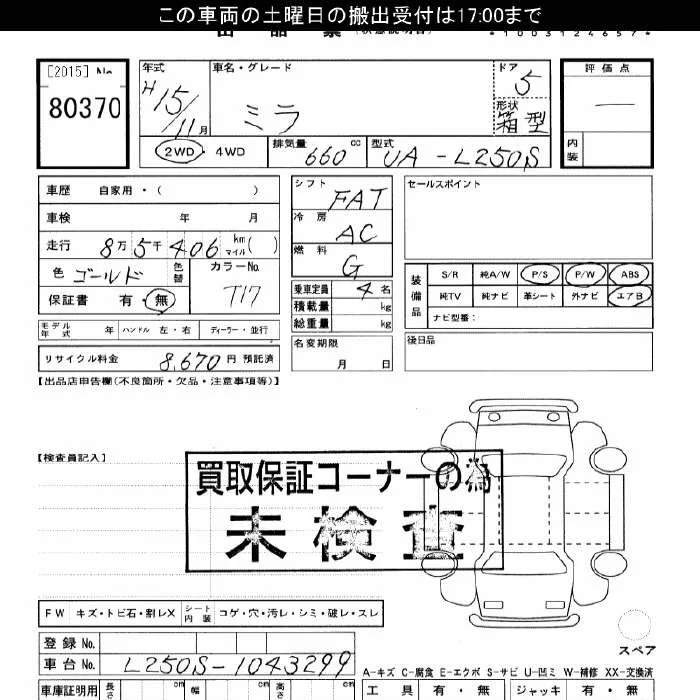 この車両の土曜日の搬出受付は17:00まで
出 品 票 (状態説明書)
*1003124657*
[2015] No
80370
年式
H 15/11 月
車名・グレード
ミラ
ドア
5
形状
箱型
評価点
—
内装
2WD ・ 4WD
排気量
660 cc
型式
UA - L250S
車歴 自家用・( )
車検 年 月
走行 8万5千406 km マイル( )
色 ゴールド
色替
カラーNo.
T17
保証書 有・無
モデル年式 年
ハンドル 左・右
ディーラー・並行
リサイクル料金 8,670 円 預託済
シフト
FAT
冷房
AC
燃料
G
乗車定員 4 名
積載量 kg
総重量 kg
名変期限
月 日
セールスポイント
装備品
S/R 純A/W P/S P/W ABS
純TV 純ナビ 革シート 外ナビ エアB
ナビ型番:
後日品
【出品店申告欄(不良箇所・欠品・注意事項等)】
【検査員記入】
買取保証コーナーの為
未検査
FW キズ・トビ石・割レX
シート内装 コゲ・穴・汚レ・シミ・破レ・スレ
スペア
登録 No.
車台 No. L250S-1043299
A-キズ C-腐食 E-エクボ S-サビ U-凹ミ W-補修 XX-交換済
車庫証明用 長さ cm 幅 cm 高さ cm
工具 有・無 ジャッキ 有・無